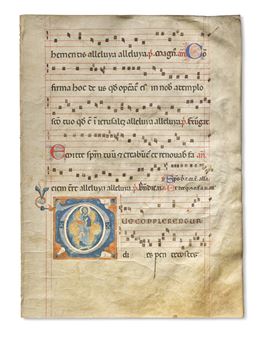 hementis alleluya alleluya. p. magn. an. Co
firma hoc de us qd opat es in nob a templo
sco tuo qd e i ierusale alleluya alleluya. p. 
Emitte spm tuu & creabunt et renovab fa an
ciem tre alleluya alleluya. p. 
UE COMPLERENTUR
di es pen tecostes